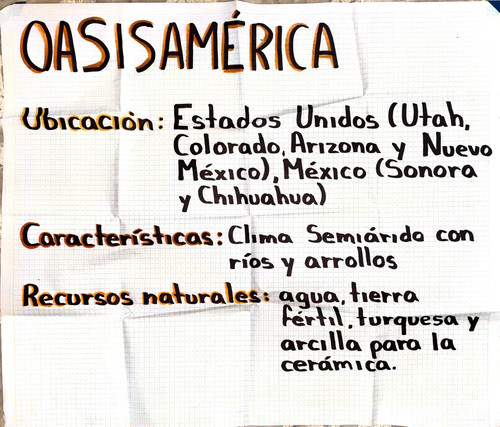 OASISAMÉRICA
Ubicación: Estados Unidos (Utah,
Colorado, Arizona y Nuevo
México), México (Sonora
y Chihuahua)
Características: Clima Semiárido con
ríos y arrollos
Recursos naturales: agua, tierra
fértil, turquesa y
arcilla para la
cerámica.